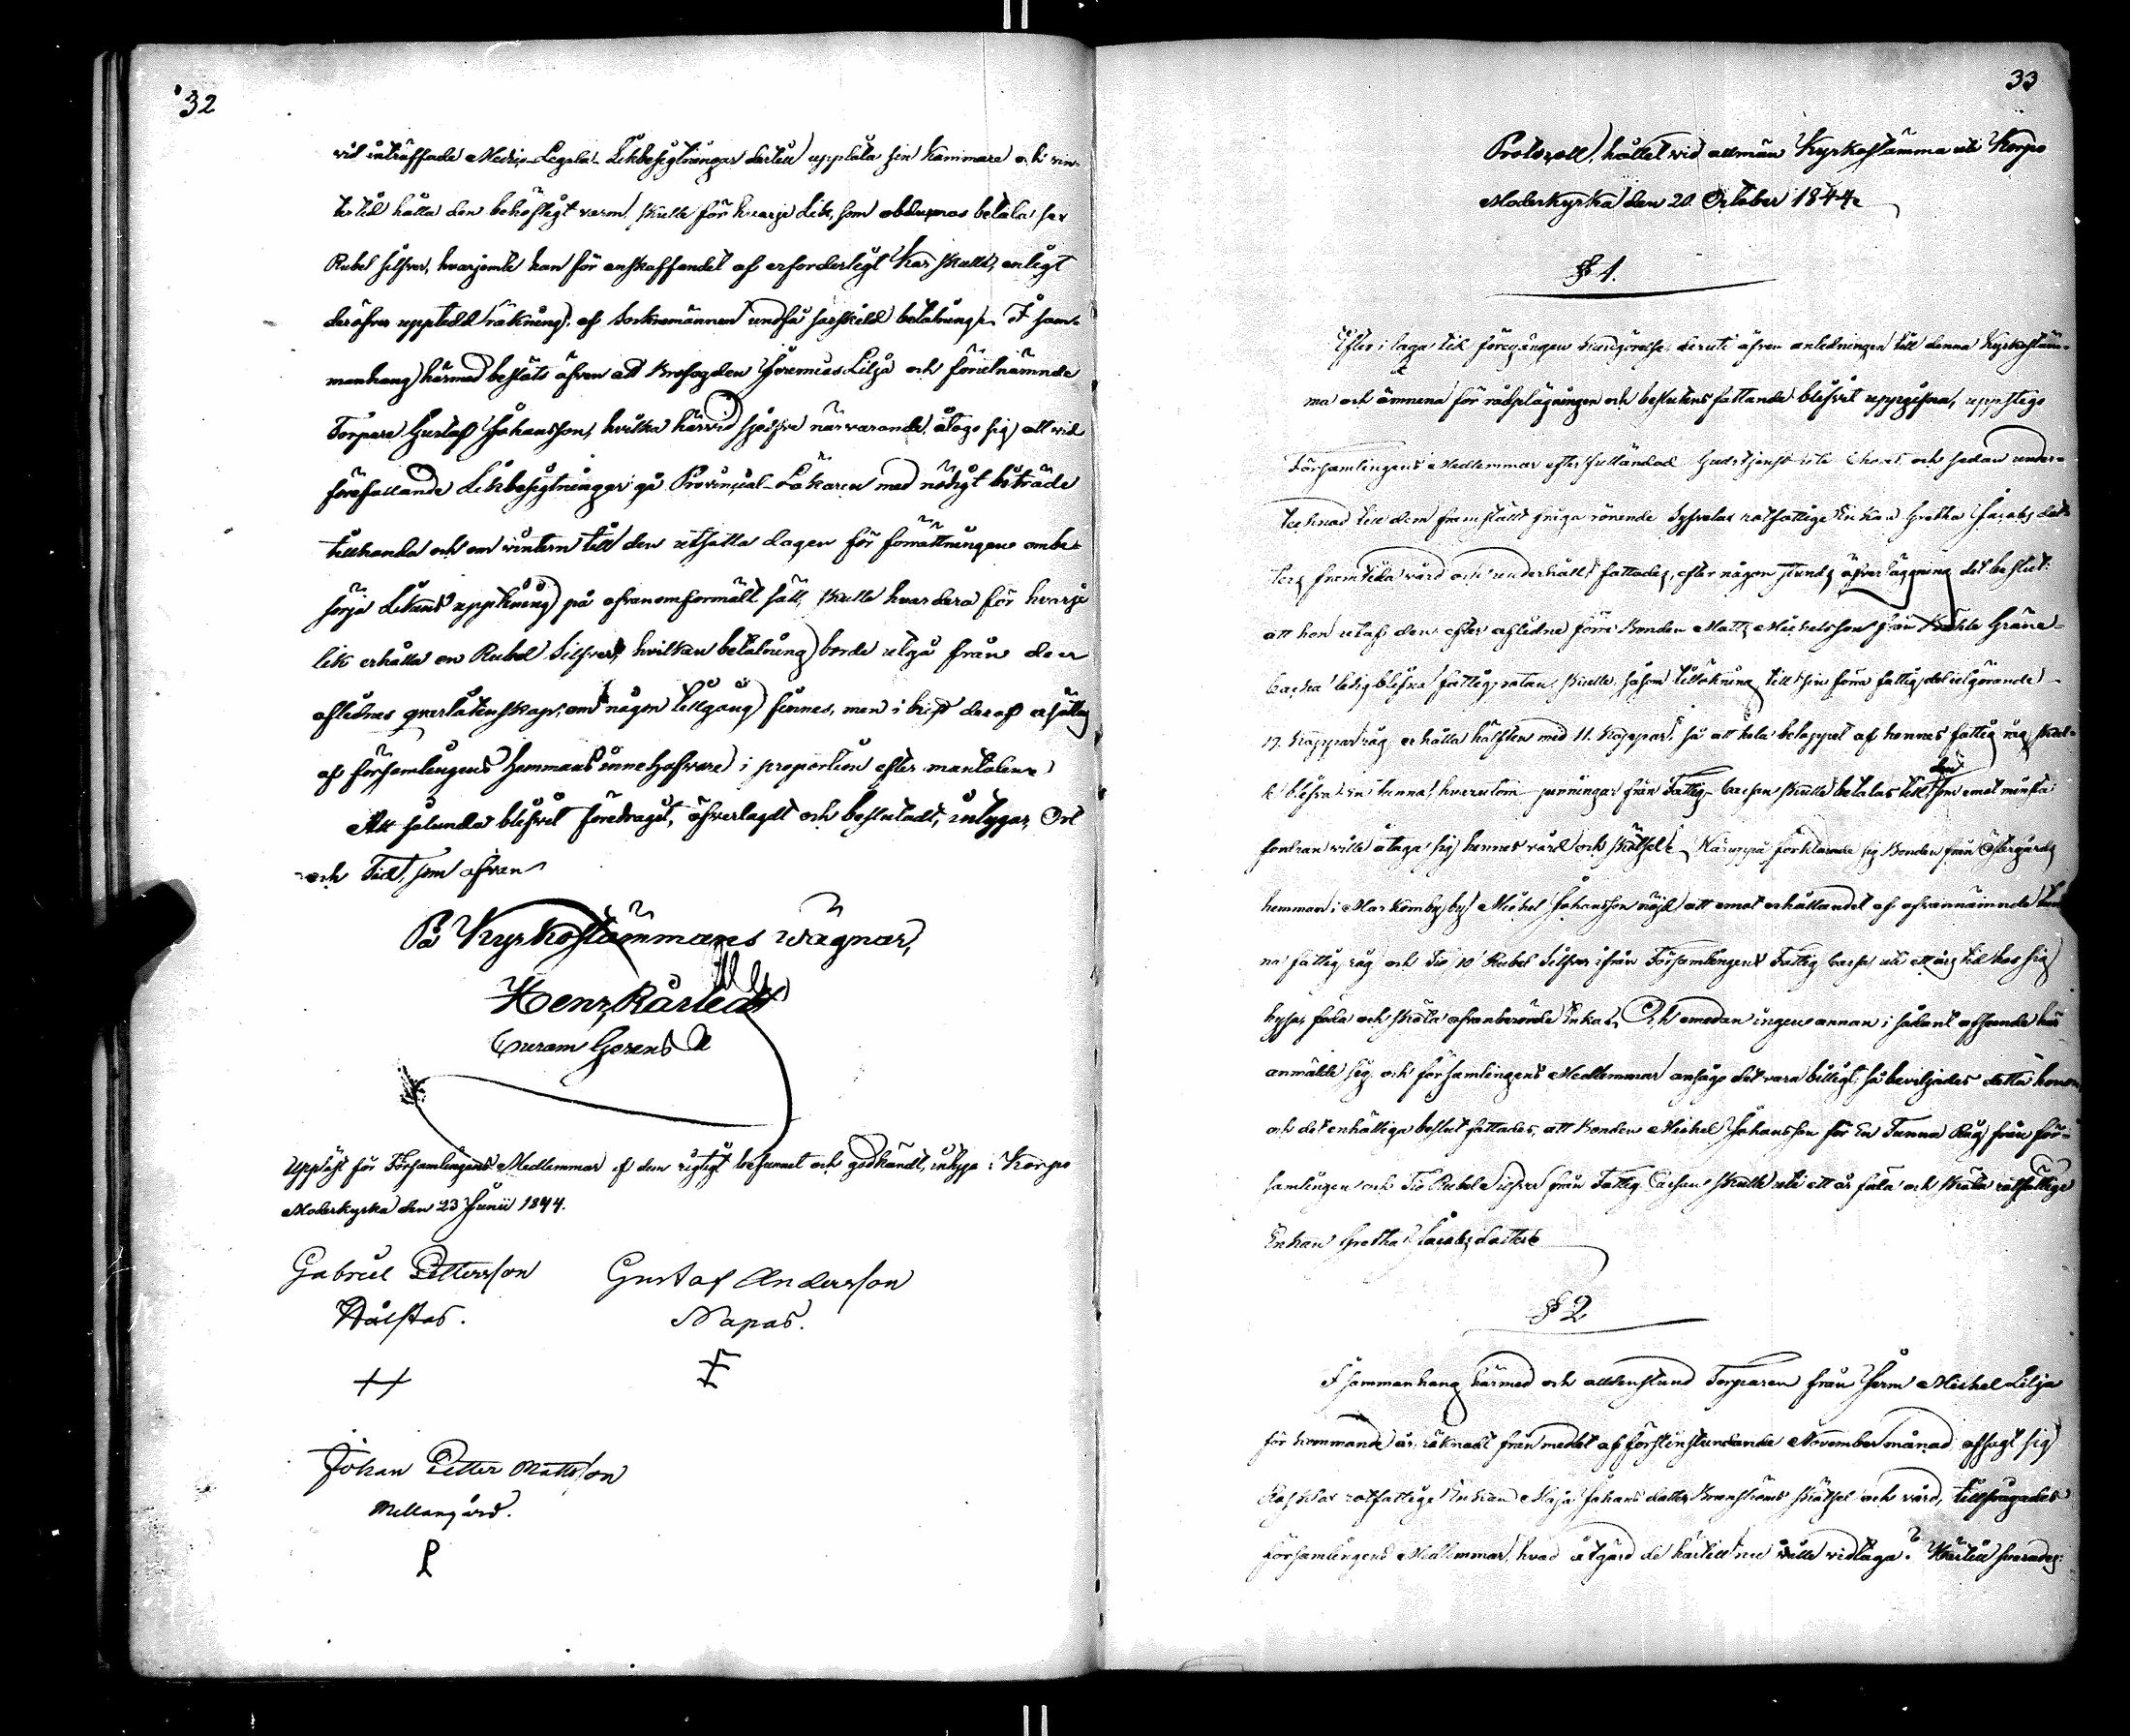 32
vid inträffade Medico-Legala Likbesigtningar dertill upplåta sin kammare och vin-
tertid hålla den behöfligt varm, skulle för hvarje Lik, som obduceras betala sex
Rubel silfver, hvarjemte han för anskaffandet af erforderligt kar skulle, enligt
deröfver uppstäld räkning, af Socknemännen undfå särskild betalning. I sam-
manhang härmed beslöts äfven att Brofogden Jeremias Lilja och förutnämnde
Torpare Gustaf Johansson, hvilka härvid sjelfve närvarande, åtogo sig att vid
förefallande Likbesigtningar gå Provincial-Läkaren med nödigt biträde
tillhanda och om vintern till den utsatta dagen för förrättningen ombe-
sörja Likens upptining på ofvanomförmält sätt, skulle hvardera för hvarje
lik erhålla en Rubel Silfver, hvilken betalning borde utgå från den
aflidnes qvarlåtenskap, om någon tillgång finnes, men i brist deraf ersättas
af församlingens Hemmans innehafvare i proportion efter mantalen.
Att sålunda blifvit föredraget, öfverlagdt och beslutadt, intygar, Ort
och Tid, som ofvan
På Kyrkostämmans vägnar,
Henr. Rårledt
Curam Gerens
Uppläst för Församlingens Medlemmar af dem rigtigt befunnet och godkändt, intyga i Korpo
Moderkyrka den 23 Junii 1844.
Gabriel Pettersson Gustaf Andersson
Wålstas. Napas.
Johan Petter Mattsson
Mellangård.
33
Protocoll, hållet vid allmän Kyrkostämma uti Korpo
Moderkyrka den 20 October 1844.
§ 1.
Efter i laga tid föregången kungörelse, deruti äfven anledningen till denna Kyrkostäm-
ma och ämnena för rådplägningen och beslutens fattande blifvit uppgifna, uppstego
Församlingens Medlemmar efter fulländad Gudstjenst uti choret, och sedan under-
tecknad till dem framställt fråga rörande Sysvalax rotfattige Enkan Gretha Jacobsdot-
ters framtida vård och underhåll, fattades, efter någon stunds öfverläggning det beslut:
att hon utaf den efter aflidne förre Bonden Matts Michelsson från Kåhla Gräne-
backa ledig blifna fattig-rotan, skulle, såsom tillökning till sin förra fattigdel utgörande
19. Kappar råg, erhålla hälften med 11. Kappar, så att hela beloppet af hennes fattig råg skul-
le blifva en tunna, hvarutom penningar från Fattig-Cassan skulle betalas till den som emot minsta
fordran ville åtaga sig hennes vård och skötsel. Häruppå förklarade sig Bonden från Östergårds
hemman i Markomby by Michel Johansson nöjd att emot erhållandet af ofvannämnde tun-
na fattig råg och Tio 10 Rubel Silfver ifrån Församlingens Fattig Cassa uti ett års tid hos sig
hysa, föda och sköta ofvanberörde Enka. Och emedan ingen annan i sådant afseende här
anmälde sig och församlingens Medlemmar ansågo det vara billigt, så beviljades detta honom
och det enhälliga beslut fattades, att Bonden Michel Johansson för En Tunna Råg från för-
samlingen och Tio Rubel Silfver från Fattig Cassan skulle uti ett år föda och sköta rotfattige
Enkan Gretha Jacobsdotter
§ 2
I sammanhang härmed och alldenstund Torparen från Jerm Michel Lilja
för kommande år, räknadt från medlet af förstinstundande November månad, afsagt sig
rotfattige Enkan Maja Johansdotter Brunströms skötsel och vård, tillfrågades
församlingens Medlemmar, hvad åtgärd de härtill nu ville vidtaga? Härtill svarades: